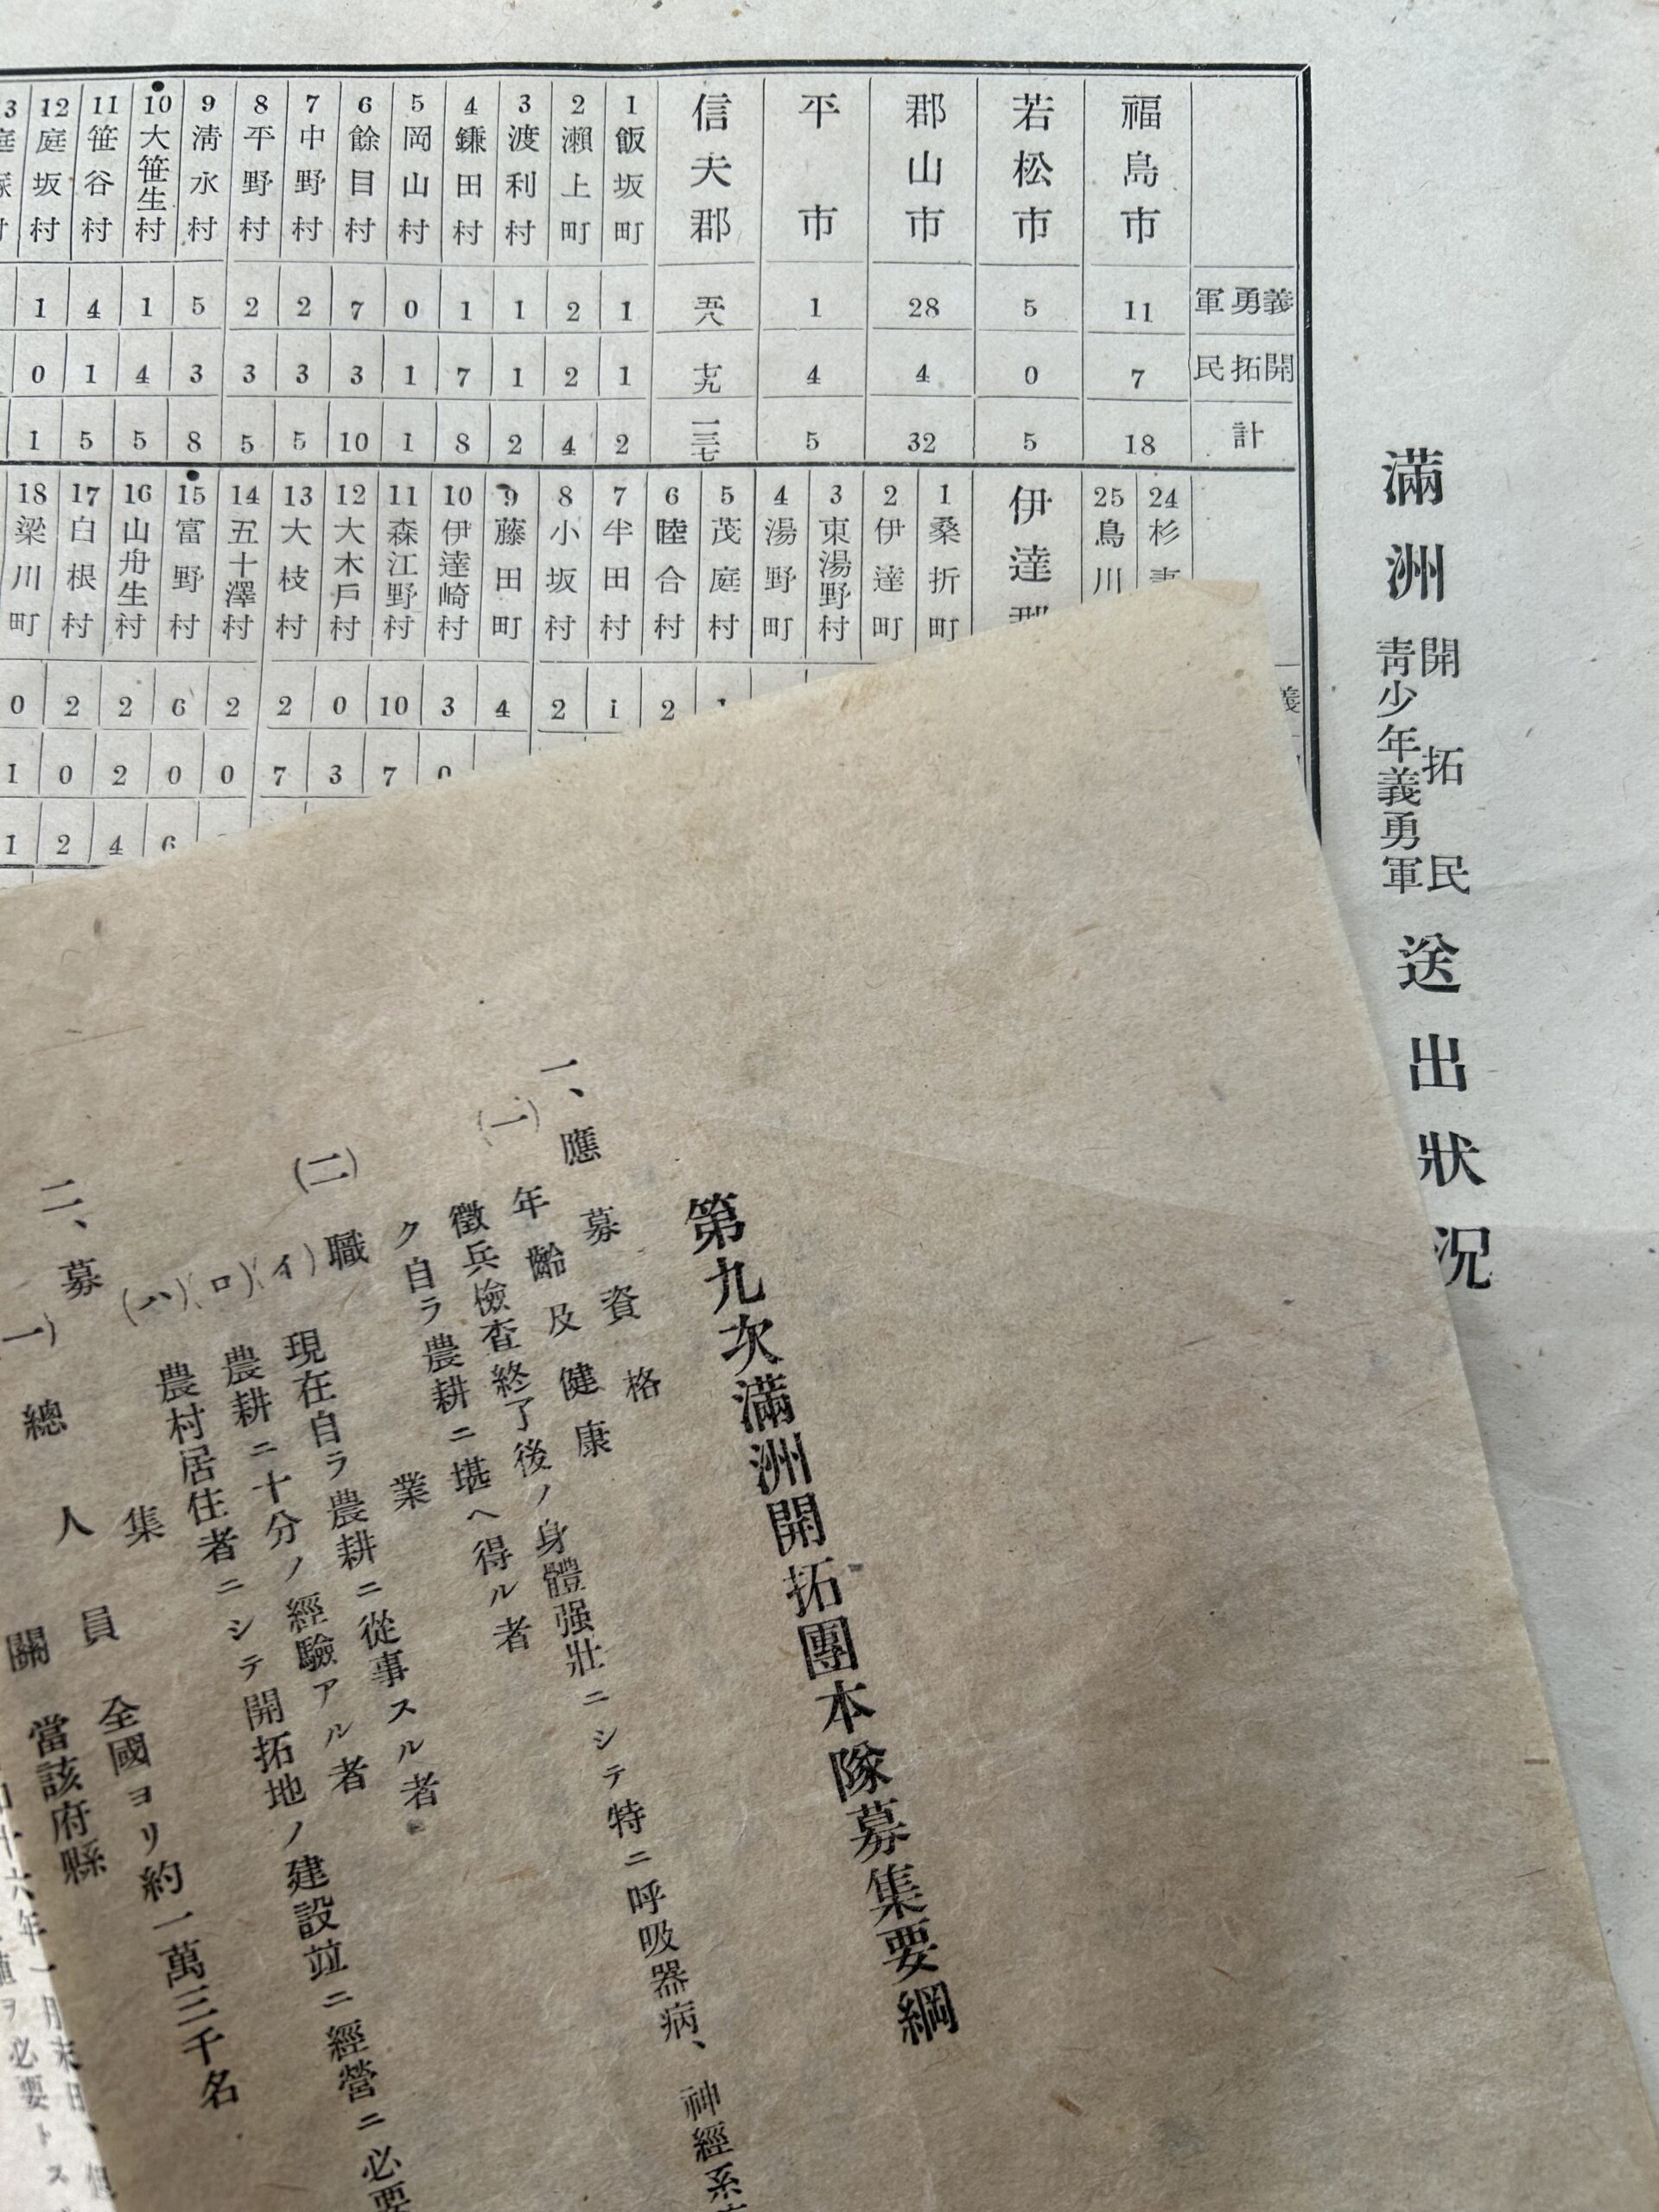 滿洲開拓民青少年義勇軍送出狀況
義勇軍
開拓民
計
福島市 11 7 18
若松市 5 0 5
郡山市 28 4 32
平市 1 4 5
信夫郡 五八 七九 一三七
1 飯坂町 1 1 2
2 瀬上町 2 2 4
3 渡利村 1 1 2
4 鎌田村 1 7 8
5 岡山村 0 1 1
6 餘目村 7 3 10
7 中野村 2 3 5
8 平野村 2 3 5
9 淸水村 5 3 8
10 大笹生村 1 4 5
11 笹谷村 4 1 5
12 庭坂村 1 0 1
24 杉
25 鳥川
伊達郡
1 桑折町
2 伊達町
3 東湯野村
4 湯野町
5 茂庭村
6 陸合村 2
7 半田村 1
8 小坂村 2
9 藤田町 4
10 伊達崎村 3 0
11 森江野村 10 7
12 大木戸村 0 3
13 大枝村 2 7
14 五十澤村 2 0
15 富野村 6 0 6
16 山舟生村 2 2 4
17 白根村 2 0 2
18 梁川町 0 1 1
第九次滿洲開拓團本隊募集要綱
一、應募資格
(一) 年齡及健康
徵兵檢査終了後ノ身體强壯ニシテ特ニ呼吸器病、神經系
ク自ラ農耕ニ堪ヘ得ル者
(二) 職業
(イ) 現在自ラ農耕ニ從事スル者
(ロ) 農耕ニ十分ノ經驗アル者
(ハ) 農村居住者ニシテ開拓地ノ建設竝ニ經營ニ必要
二、募集人員 全國ヨリ約一萬三千名
(一) 總關 當該府縣
十六年一月末日、但
ヲ必要トス